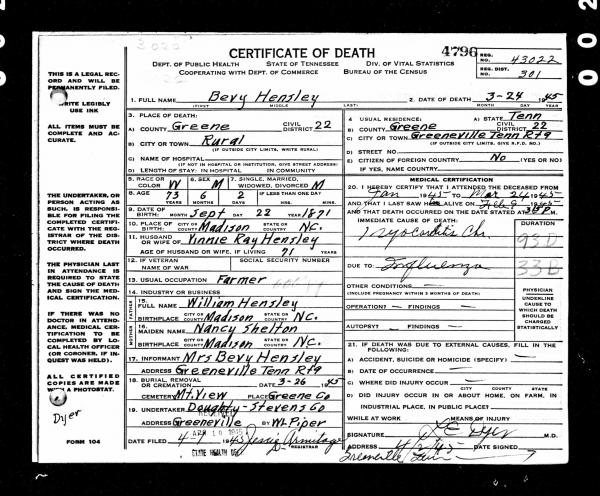 3022
CERTIFICATE OF DEATH
4796
REG. NO. 43022
DEPT. OF PUBLIC HEALTH STATE OF TENNESSEE DIV. OF VITAL STATISTICS
REG. DIST. 301
COOPERATING WITH DEPT. OF COMMERCE BUREAU OF THE CENSUS
THIS IS A LEGAL RECORD AND WILL BE PERMANENTLY FILED.
WRITE LEGIBLY
USE INK
ALL ITEMS MUST BE COMPLETE AND ACCURATE.
THE UNDERTAKER, OR PERSON ACTING AS SUCH, IS RESPONSIBLE FOR FILING THE COMPLETED CERTIFICATE WITH THE REGISTRAR OF THE DISTRICT WHERE DEATH OCCURRED.
THE PHYSICIAN LAST IN ATTENDANCE IS REQUIRED TO STATE THE CAUSE OF DEATH AND SIGN THE MEDICAL CERTIFICATION.
IF THERE WAS NO DOCTOR IN ATTENDANCE, MEDICAL CERTIFICATION TO BE COMPLETED BY LOCAL HEALTH OFFICER (OR CORONER, IF INQUEST WAS HELD).
ALL CERTIFIED COPIES ARE MADE WITH A PHOTOSTAT.
Dyer
FORM 104
1. FULL NAME Bevy Hensley
(FIRST) (MIDDLE) (LAST)
2. DATE OF DEATH 3-24 1945
MONTH DAY YEAR
3. PLACE OF DEATH:
A) COUNTY Greene CIVIL DISTRICT 22
B) CITY OR TOWN Rural
(IF OUTSIDE CITY LIMITS, WRITE RURAL)
C) NAME OF HOSPITAL
(IF NOT IN HOSPITAL OR INSTITUTION, GIVE STREET ADDRESS)
D) LENGTH OF STAY: IN HOSPITAL IN COMMUNITY
4. USUAL RESIDENCE: A) STATE Tenn
B) COUNTY Greene CIVIL DISTRICT 22
C) CITY OR TOWN Greeneville Tenn Rt9
(IF OUTSIDE CITY LIMITS, GIVE R.F.D. NO.)
D) STREET NO.
E) CITIZEN OF FOREIGN COUNTRY No (YES OR NO)
IF YES, NAME COUNTRY
5. RACE OR COLOR W
6. SEX M
7. SINGLE, MARRIED, WIDOWED, DIVORCED M
8. AGE 73 6 2 IF LESS THAN ONE DAY
YRS. MOS. DAYS HRS. MINS.
9. DATE OF BIRTH: Sept 22 1871
MONTH DAY YEAR
10. PLACE OF BIRTH: Madison NC.
CITY OR COUNTY STATE OR COUNTRY
11. HUSBAND OR WIFE OF Vinnie Ray Hensley
AGE OF HUSBAND OR WIFE, IF LIVING 71 YEARS
12. IF VETERAN NAME OF WAR SOCIAL SECURITY NUMBER
13. USUAL OCCUPATION Farmer
14. INDUSTRY OR BUSINESS
FATHER
15. FULL NAME William Hensley
BIRTHPLACE CITY OR COUNTY Madison STATE OR COUNTRY NC.
MOTHER
16. MAIDEN NAME Nancy Shelton
BIRTHPLACE CITY OR COUNTY Madison STATE OR COUNTRY NC.
17. INFORMANT Mrs Bevy Hensley
ADDRESS Greeneville Tenn Rt9
18. BURIAL, REMOVAL OR CREMATION DATE 3-26 1945
CEMETERY Mt. View PLACE Greene Co
19. UNDERTAKER Doughty-Stevens Co
Greeneville BY Wm Piper
APR 10 1945
DATE FILED 4- 1945 Jessie Armitage
MEDICAL CERTIFICATION
20. I HEREBY CERTIFY THAT I ATTENDED THE DECEASED FROM
Jan 1945 TO Mar 24 1945
AND THAT I LAST SAW H ALIVE ON Feb 9 1945
AND THAT DEATH OCCURRED ON THE DATE STATED AT M.
IMMEDIATE CAUSE OF DEATH: DURATION
Myocarditis Ch. 93D
DUE TO: Influenza 33B
OTHER CONDITIONS
(INCLUDE PREGNANCY WITHIN 3 MONTHS OF DEATH)
OPERATION? FINDINGS
AUTOPSY? FINDINGS
PHYSICIAN
UNDERLINE CAUSE TO WHICH DEATH SHOULD BE CHARGED STATISTICALLY
21. IF DEATH WAS DUE TO EXTERNAL CAUSES, FILL IN THE FOLLOWING:
A) ACCIDENT, SUICIDE OR HOMICIDE (SPECIFY)
B) DATE OF OCCURRENCE
C) WHERE DID INJURY OCCUR
CITY COUNTY STATE
D) DID INJURY OCCUR IN OR ABOUT HOME, ON FARM, IN
INDUSTRIAL PLACE, IN PUBLIC PLACE?
WHILE AT WORK MEANS OF INJURY
SIGNATURE Dyer M.D.
ADDRESS 4/2/45 DATE SIGNED
Greeneville Tenn